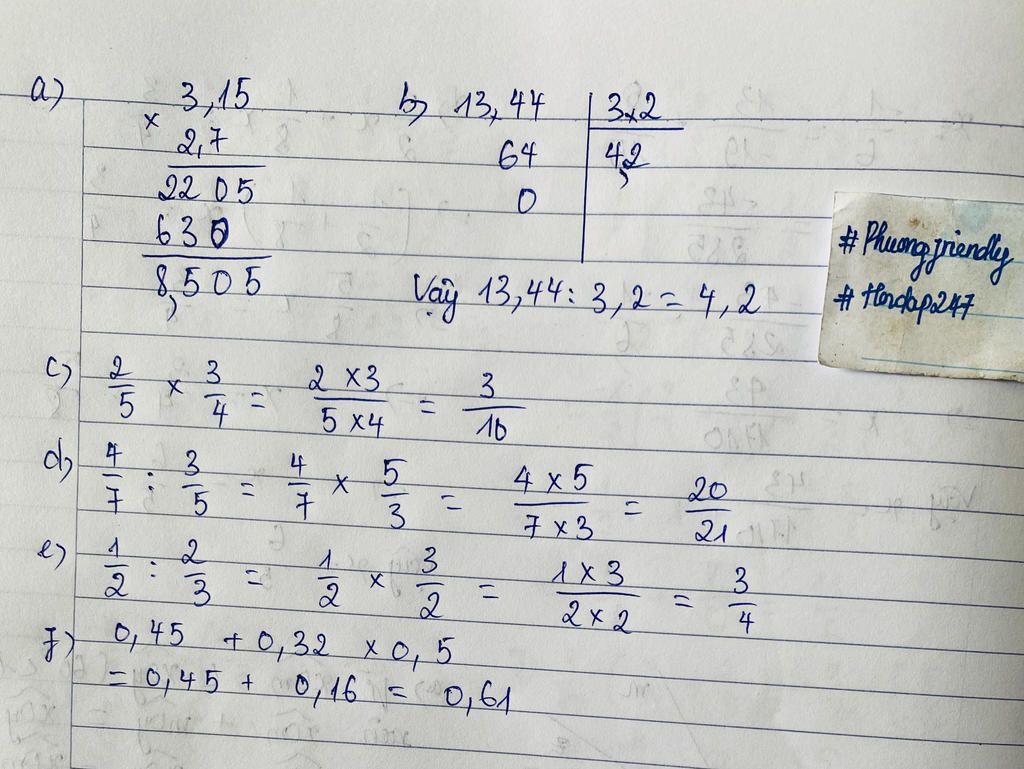 a) 3,15
× 2,7
2205
630
8,505
b) 13,44 | 3,2
64 4,2
0
Vậy 13,44 : 3,2 = 4,2
#Phuongfriendly
#Hoidap247
c) 2/5 × 3/4 = 2 × 3 / 5 × 4 = 3/10
d) 4/7 : 3/5 = 4/7 × 5/3 = 4 × 5 / 7 × 3 = 20/21
e) 1/2 : 2/3 = 1/2 × 3/2 = 1 × 3 / 2 × 2 = 3/4
f) 0,45 + 0,32 × 0,5
= 0,45 + 0,16 = 0,61